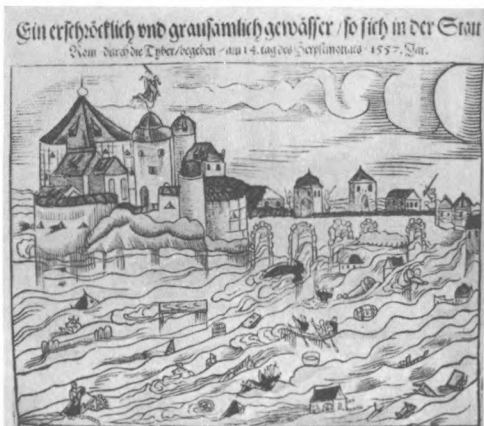 Ein erschröcklich vnd grausamlich gewässer / so sich in der Statt
Rom durch die Tyber / begeben am 14. tag des Herpstmonats 1557. Jar.